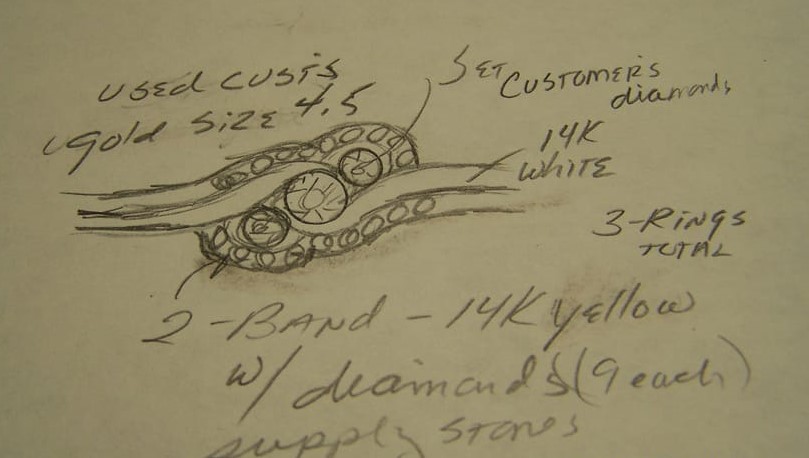 used custs
gold size 4.5
Set
Customers
diamonds
14K
white
3-Rings
total
2-Band - 14K yellow
w/ diamonds (9 each)
supply stones